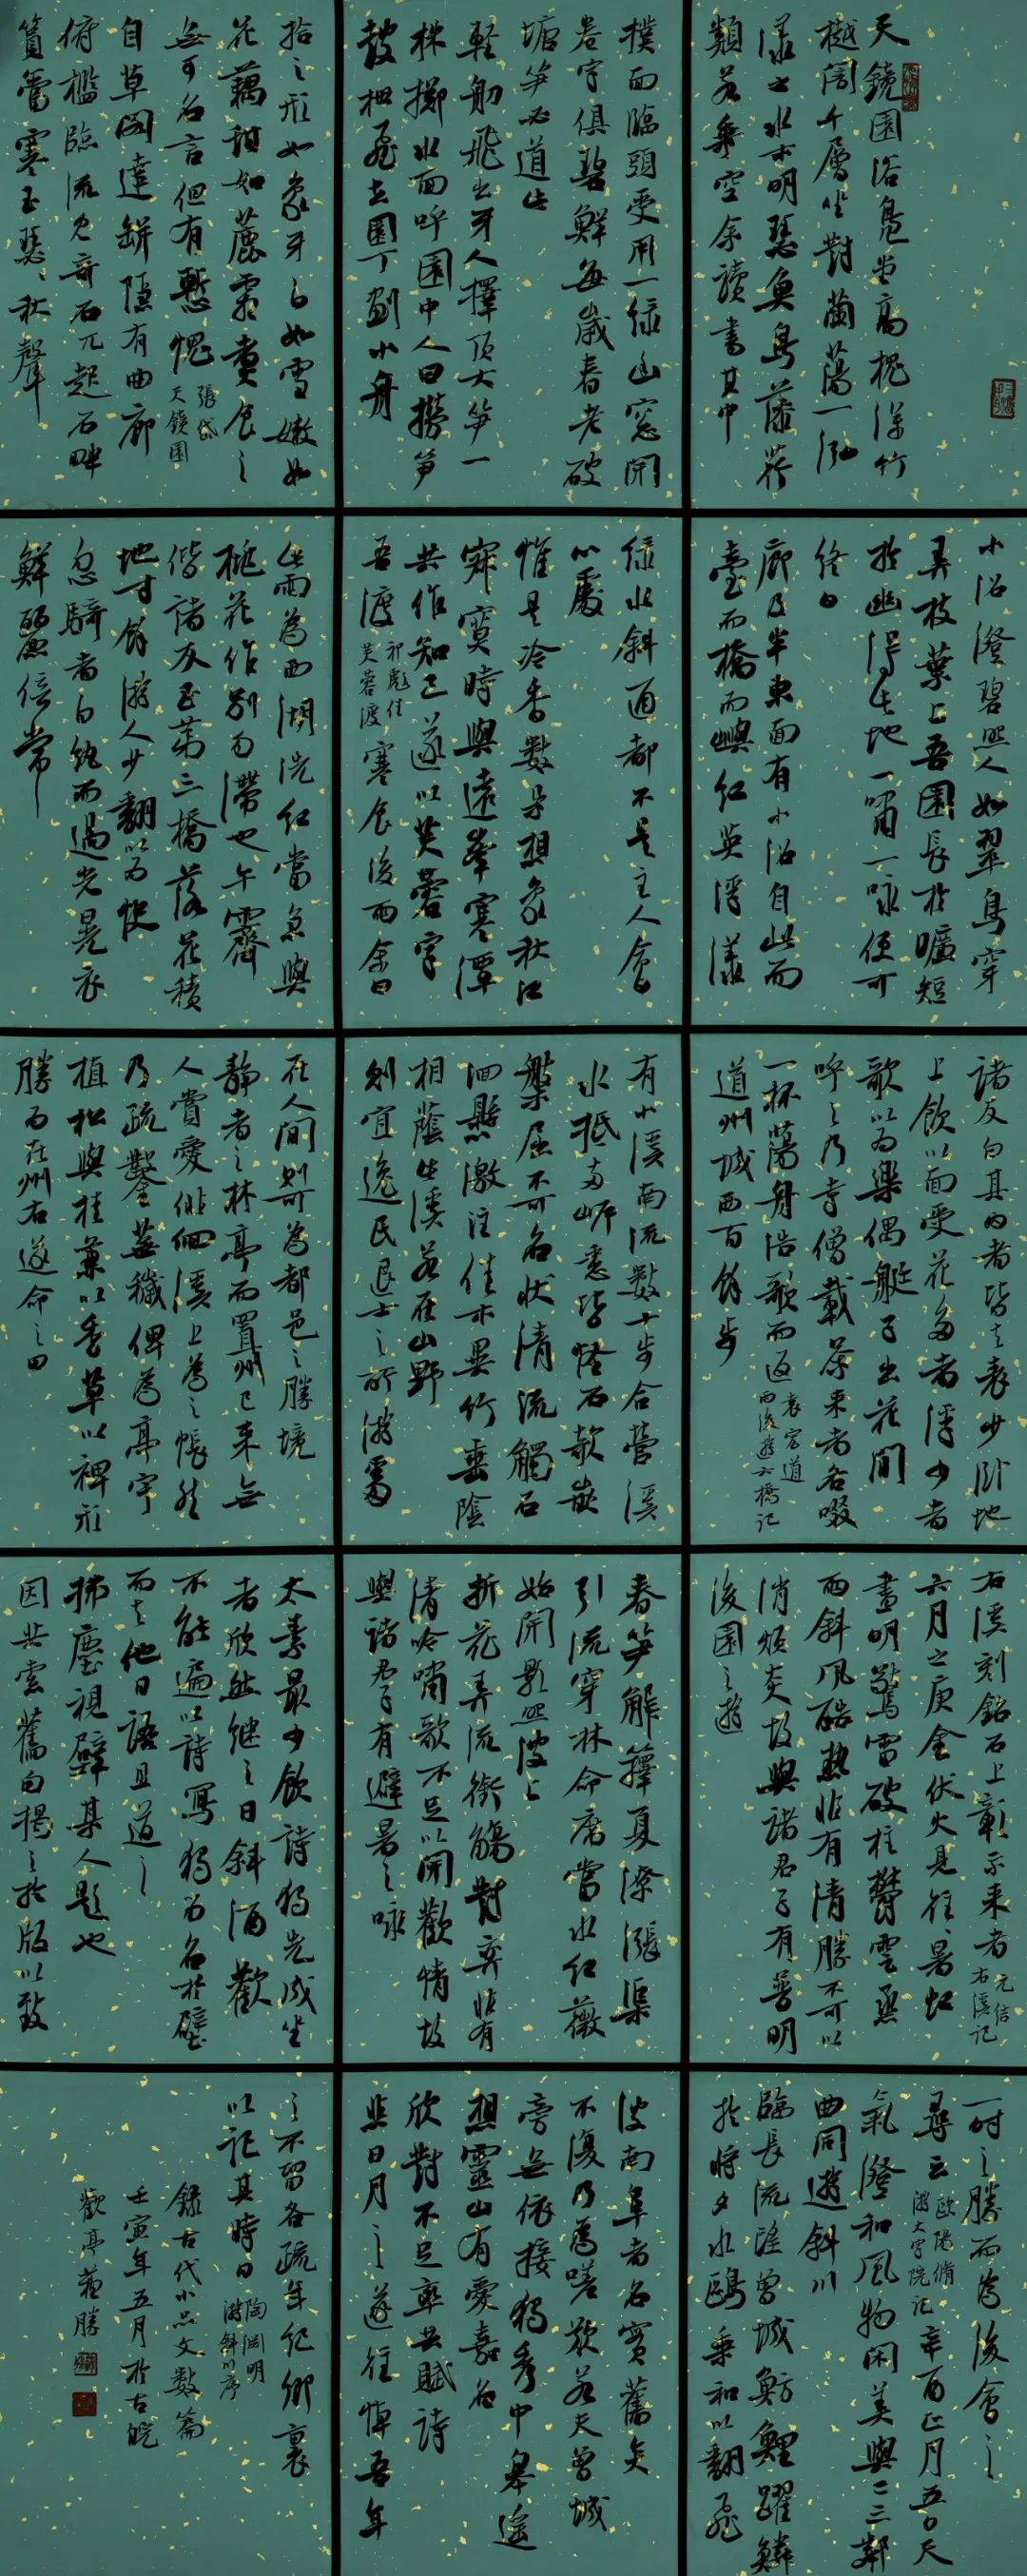 天鏡園浴鳧堂高槐深竹
樾闇千層坐對蘭蕩一泓
漾之水木明瑟魚鳥藻荇
類若乘空余讀書其中
撲面臨頭受用一綠幽窓開
卷字俱碧鮮每歲春老破
塘笋必道此
輕舠飛出牙人擇頂大笋一
株擲水面呼園中人曰撈笋
鼓枻飛去園丁劃小舟
拾之形如象牙白如雪嫩如
花藕甜如蔗霜煮食之
無可名言但有慙愧
張岱
天鏡園
自草閣達缾隱有曲廊
俯檻臨流見奇石兀起石畔
篔簹寒玉瑟瑟秋聲
小沼澄碧照人如翠鳥穿
弄枝葉上吾園長於曠短
於幽得此地一嘯一詠便可
終日
廊及半東面有小沼自此而
臺而橋而嶼紅英浮漾
綠水斜通都不是主人會
心處
惟是冷香數朵想象秋江
寂寞時與遠峯寒潭
共作知己遂以芙蓉字
吾渡
祁彪佳
芙蓉渡
寒食後雨余曰
此雨為西湖洗紅當急與
桃花作別勿滯也午霽
偕諸友至第三橋落花積
地寸餘游人少翻以為快
忽騎者白紈而過光晃衣
鮮麗倍常
諸友白其内者皆去表少卧地
上飲以面受花多者浮少者
歌以為樂偶艇子出花間
呼之乃寺僧載茶来者各啜
一杯蕩舟浩歌而返
袁宏道
雨後遊六橋记
道州城西百餘步
有小溪南流數十步合營溪
水抵兩岸悉皆怪石欹嵌
盤屈不可名狀清流觸石
洄懸激注佳木異竹垂陰
相蔭此溪若在山野
則宜逸民退士之所游處
在人間則可為都邑之勝境
靜者之林亭而置州已来無
人賞愛徘徊溪上為之悵然
乃疏鑿蕪穢俾為亭宇
植松與桂兼以香草以裨形
勝為在州右遂命之曰
右溪刻銘石上彰示来者
元结
右溪记
六月之庚金伏火見往暑虹
晝明驚雷破柱鬱雲蒸
雨斜風酷熱非有清勝不可以
消煩炎故與諸君子有普明
後園之遊
春笋解籜夏潦漲渠
引流穿林命席當水紅薇
始開影照波上
折花弄流銜觴對弈非有
清吟嘯歌不足以開歡情故
與諸君子有避暑之咏
太素最少飲詩獨先成坐
者欣然継之日斜酒歡
不能遍以詩寫獨留名於壁
而去他日語且道之
拂塵視壁某人題也
因共索舊句揭之於版以致
一时之勝而為後會之
尋云
歐陽脩
游大字院记
辛酉正月五日天
氣澄和風物闲美與二三鄰
曲同遊斜川
臨長流望曾城魴鯉躍鱗
於將夕水鷗乘和以翻飛
彼南阜者名實舊矣
不復乃為嗟歎若夫曾城
旁無依接獨秀中皋遙
想靈山有愛嘉名
欣對不足率共賦詩
悲日月之遂往悼吾年
之不留各疏年纪鄉裏
以記其時日
陶淵明
游斜川序
錄古代小品文數篇
壬寅年五月於古皖